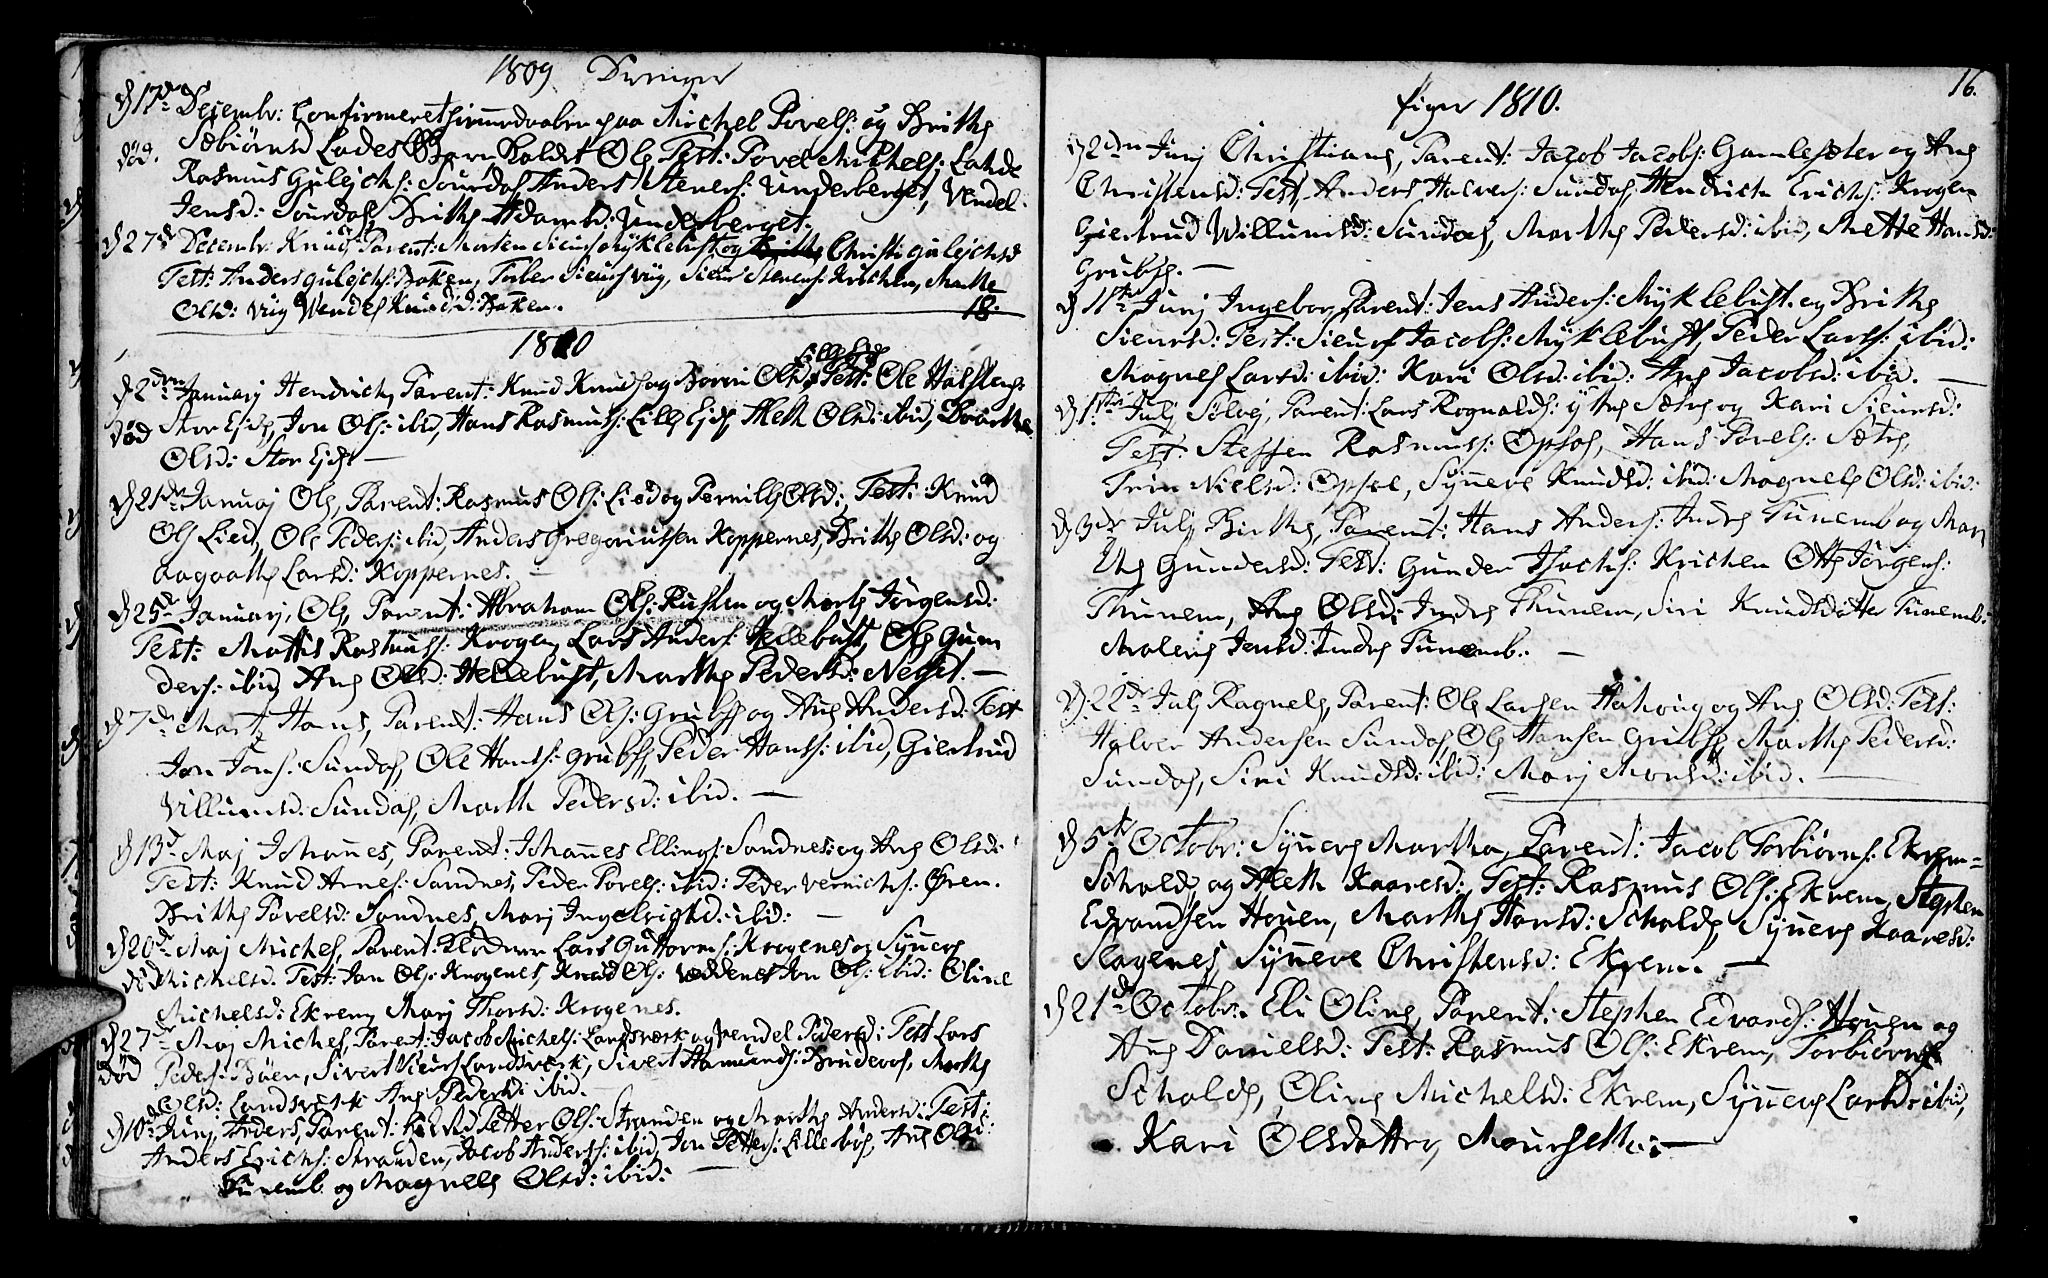 1809 Drenger
d 17de Desembr: Confirmeret hiemedaaben paa Michel Povels: og Brithe
død. Sæbiørnsd Lades Barn kaldet Ole Test: Povel Michels: Lahde
Rasmus Gulejchs: Sourdal Anders Steners: Underberget, Vendel
Jensd: Sourdal, Brithe Adamsd: Underberget.
d 27de Decembr: Knud, Parent: Morten Sieurs Myklebust og Christi Gulejchsd
Test: Anders Gulejchs: Bakken, Siur Steners: Krichen, Marthe
Olsd: Viig Wendel Knudsd: Bakken. 18.
1810
d 2den Januarj Hendrich, Parent: Knud Knuds og Berri Olsd Lille Ejde Test: Ole Halstens:
død Stor Ejde, Jon Ols: ibid, Hans Rasmuss: Lille Ejde, Aleth Olsd: ibid, Dorthe
Olsd: Stor Ejde —
d 21de Januarj Ole, Parent: Rasmus Ols: Lied og Pernille Olsd: Test: Knud
Ols Lied, Ole Peders: ibid, Anders Gregoriussen Koppernes, Brithe Olsd: og
Aagaathe Larsd: Koppernes. —
d 25de Januarj, Ole, Parent: Abraham Ols: Rusten og Marte Jørgensd:
Test: Mathis Rasmuss: Krogen, Lars Anders: Hellebust, Ole Gun
ders: ibid, Ane Olsd: Hellebust, Marthe Pedersd: Neset. —
d 7de Marti Hans, Parent: Hans Ols: Grubse og Ane Andersd: Test
Jon Jons: Sundal, Ole Hans: Grubse, Peder Hans: ibid, Giertrud
Villumsd: Sundal, Marth Pedersd: ibid. —
d 13d Maj Johannes, Parent: Johannes Ellings: Sandnes: og Ane Olsd:
Test: Knud Arnes: Sandnes, Peder Povels: ibid: Peder Vernichs: Øren.
Brithe Povelsd: Sandnes, Marj Ingebrigtsd: ibid: —
d 20de Maj Michel, Parent: Lars Guttorms: Krogenes og Synneve
død Michelsd. Test: Jon Ols: Krogenes, Knud Ols: Vaddenes Jon Ols: ibid: Oline
Michelsd: Ekrem, Marj Thorsd: Krogenes.
d 27de Maj Michel, Parent: Jacob Michels: Landsværk og Vendel Pedersd: Test Lars
død Peders: Bøen, Sivert Sieurs Landsværk, Sivert Hamunds: Brudevol, Marthe
Olsd: Landsværk Ane Pedersd: ibid.
d 10de Junj, Anders, Parent: Petter Ols: Stranden og Marthe Andersd: Test:
Anders Erichs: Stranden, Jacob Anders: ibid, Jon Petters: Lillebøe, Ane Olsd:
Tunemb og Magnele Olsd: ibid: —
16.
Piger 1810.
d 2den Junj Christiane, Parent: Jacob Jacobs: Gamlesæter og Ane
Christensd: Test, Anders Halvers: Sundal, Hendrich Erichs: Krogen
Giertrud Willumsd: Sundal, Marthe Pedersd: ibid, Mette Hansd:
Grubse. —
d 11te Junj Ingebor, Parent: Jens Anders: Myklebust. og Brithe
Sieursd: Test: Sieur Jacobs: Myklebust, Peder Lars: ibid:
Magnel Larsd: ibid: Kari Olsd: ibid: Ane Jacobsd: ibid. —
d 1ste Julj Solvej, Parent: Lars Rognalds: ytre Sætre og Kari Sieursd:
Test: Steffen Rasmuss: Opsal, Hans Povels: Sætre,
Trin Nielsd: Opsal, Synneve Knudsd: ibid: Magnele Olsd: ibid:
d 3de Julj Birthe, Parent: Hans Anders: Indre Tunemb og Mari
Gundersd: Test: Gunder Krichen Otte Jørgens:
Thunem, Ane Olsd: Indre Thunem, Siri Knudsdatter Tunemb:
Malene Jensd: Indre Tunemb: —
d. 22de Julj Ragnele, Parent: Ole Larsen Hahoug og Ane Olsd: Test:
Halver Andersen Sundal, Ole Hansen Grubse, Marthe Pedersd:
Sundal, Siri Knudsd: ibid: Marj Monsd: ibid. —
d 5te Octobr: Synneve Martha, Parent: Jacob Torbiørns: Ekrem=
Scholde og Aleth Kaaresd: Test: Rasmus Ols: Ekrem, Stephen
Edvardsen Houen, Marthe Hansd: Scholde, Synneve Kaaresd:
Slagenes, Synneve Christensd: Ekrem. —
d 21de Octobr: Eli Oline, Parent: Stephen Edvards: Houen og
Ane Danielsd: Test: Rasmus Ols: Ekrem, Torbiørn
Scholde, Oline Michelsd: Ekrem, Synneve Larsd: ibid,
Kari Olsdatter, Mourseth: —